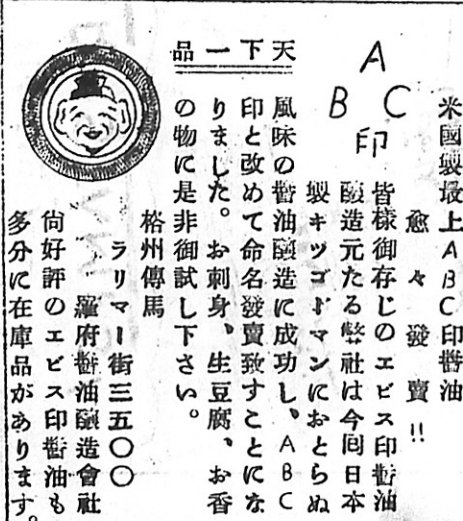 米國製最上ABC印醬油
愈々發賣!!
皆樣御存じのエビス印醬油
釀造元たる弊社は今回日本
製キツコーマンにおとらぬ
風味の醬油釀造に成功し、ABC
印と改めて命名發賣致すことにな
りました。お刺身、生豆腐、お香
の物に是非御試し下さい。
ABC
印
天下一品
格州傳馬
ラリマー街三五〇〇
羅府醬油釀造會社
尙好評のエビス印醬油も
多分に在庫品があります。